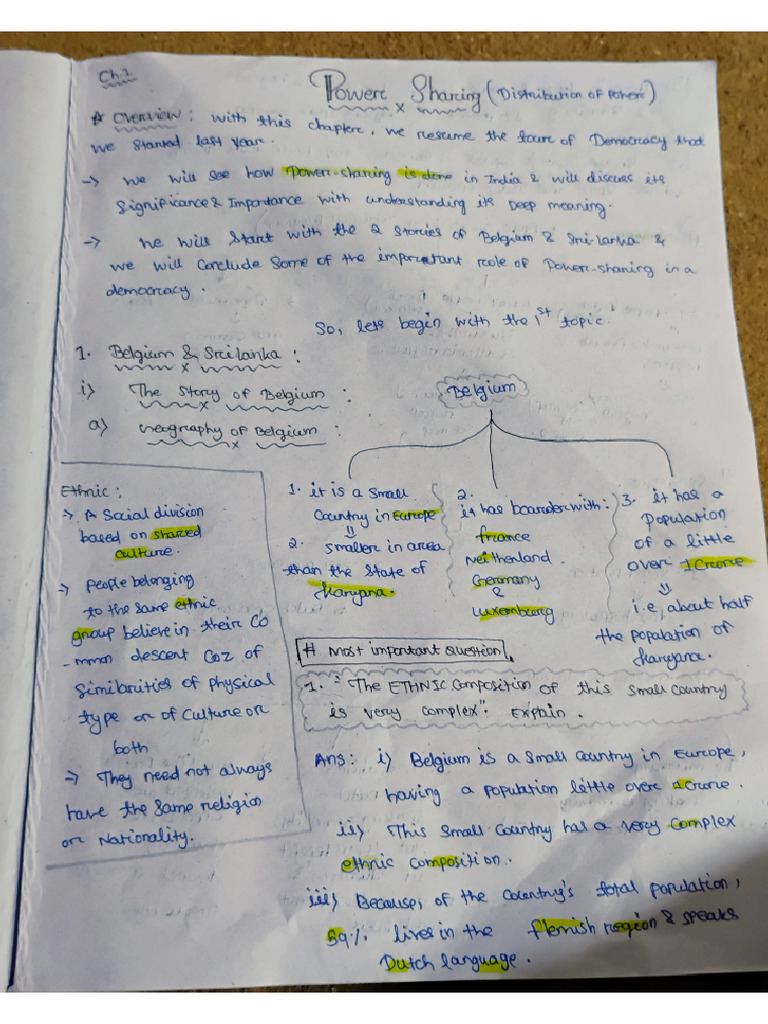 Ch.1
Power Sharing (Distribution of Power)
# Overview: with this chapter, we resume the tour of Democracy that
we started last year.
-> we will see how Power-sharing is done in India & will discuss its
Significance & Importance with understanding its Deep meaning.
-> we will start with the 2 stories of Belgium & Sri-lanka &
we will Conclude Some of the important role of Power-sharing in a
democracy.
So, lets begin with the 1st topic.
1. Belgium & Sri lanka :
i) The Story of Belgium :
a) Geography of Belgium :
Belgium
Ethnic :
-> A Social division
based on shared
culture.
-> People belonging
to the same ethnic
group believe in their co
-mmon descent coz of
Similarities of Physical
type or of Culture or
both
-> They need not always
have the same religion
or Nationality.
1. it is a small
Country in Europe
2. smaller in area
than the State of
Haryana.
2.
it has boarder with :
france
Neitherland
Germany
&
Luxembourg
3. it has a
Population
of a little
over 1 Crore
i.e, about half
the population of
Haryana.
# most important question
1. "The ETHNIC Composition of this small Country
is very complex". Explain.
Ans: i) Belgium is a small Country in Europe,
having a population little over 1 Crore.
ii) This small Country has a very Complex
ethnic composition.
iii) Because, of the Country's total population,
59% lives in the flemish region & speaks
Dutch language.